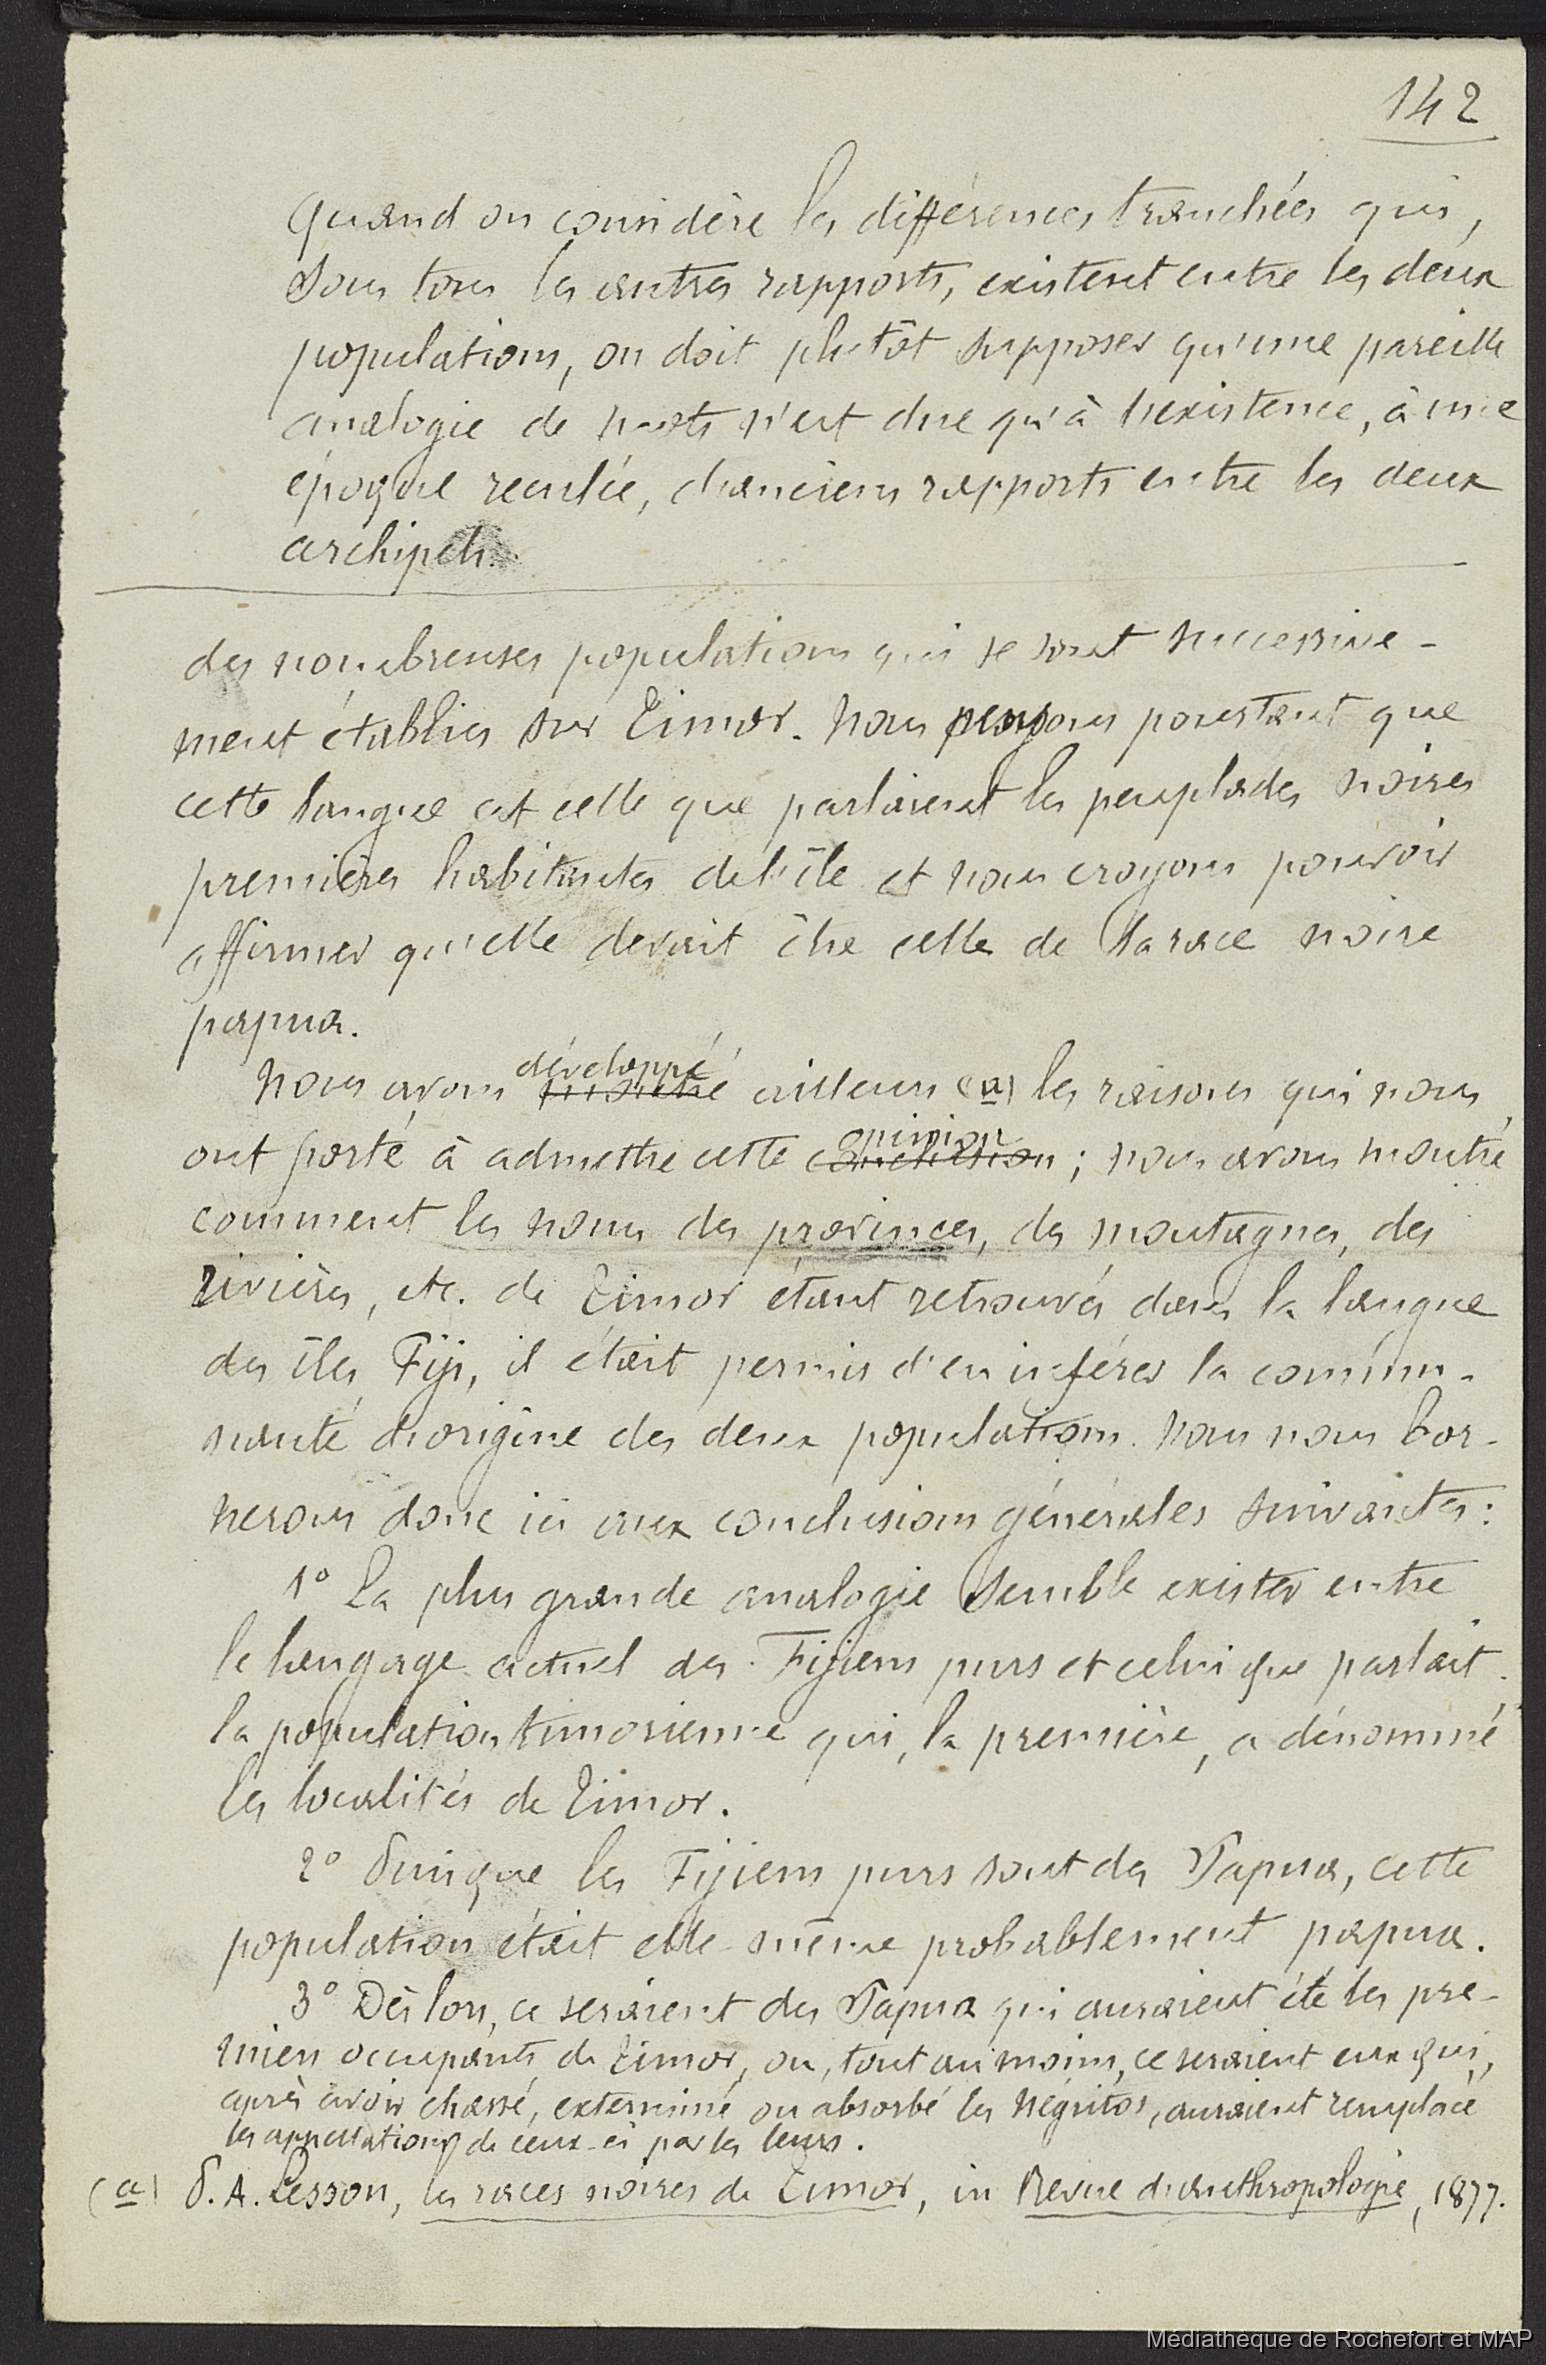 142
Quand on considère les différences tranchées qui,
sous tous les autres rapports, existent entre les deux
populations, on doit plutôt supposer qu'une pareille
analogie de mots n'est due qu'à l'existence, à une
époque reculée, d'anciens rapports entre les deux
archipels.
des nombreuses populations qui se sont successive-
ment établies sur Timor. Nous pensons pourtant que
cette langue est celle que parlaient les peuplades noires
premières habitantes de l'île et nous croyons pouvoir
affirmer qu'elle devait être celle de la race noire
papua.
développé
Nous avons montré ailleurs (a) les raisons qui nous
opinion
ont porté à admettre cette conclusion ; nous avons montré
comment les noms des provinces, des montagnes, des
rivières, etc. de Timor étant retrouvés dans la langue
des îles Fiji, il était permis d'en inférer la commu-
nauté d'origine des deux populations. Nous nous bor-
nerons donc ici aux conclusions générales suivantes :
1° La plus grande analogie semble exister entre
le langage actuel des Fijiens purs et celui que parlait
la population timorienne qui, la première, a dénommé
les localités de Timor.
2° Puisque les Fijiens purs sont des Papua, cette
population était elle-même probablement papua.
3° Dès lors, ce seraient des Papua qui auraient été les pre-
miers occupants de Timor, ou, tout au moins, ce seraient eux qui,
après avoir chassé, exterminé ou absorbé les Négritos, auraient remplacé
les appellations de ceux-ci par les leurs.
(a) P. A. Lesson, les races noires de Timor, in Revue d'anthropologie, 1877.
Médiathèque de Rochefort et MAP